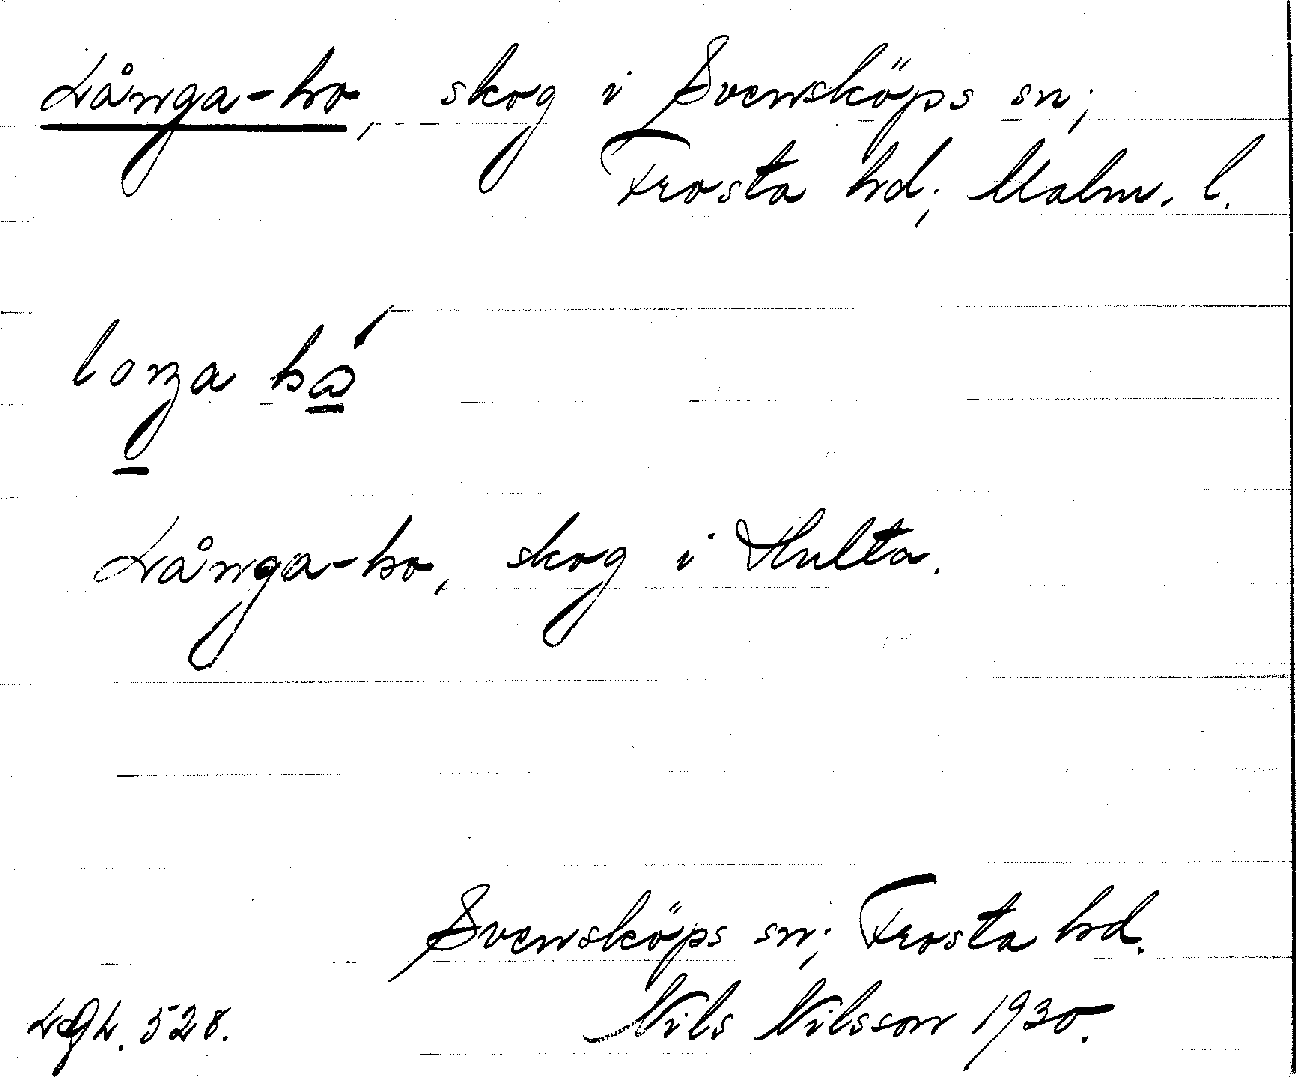 Långa-ho, skog i Svensköps sn;
Frosta hd; Malm. l.
Långa-ho, skog i Hulta.
Svensköps sn; Frosta hd.
Nils Nilsson 1930.
528.